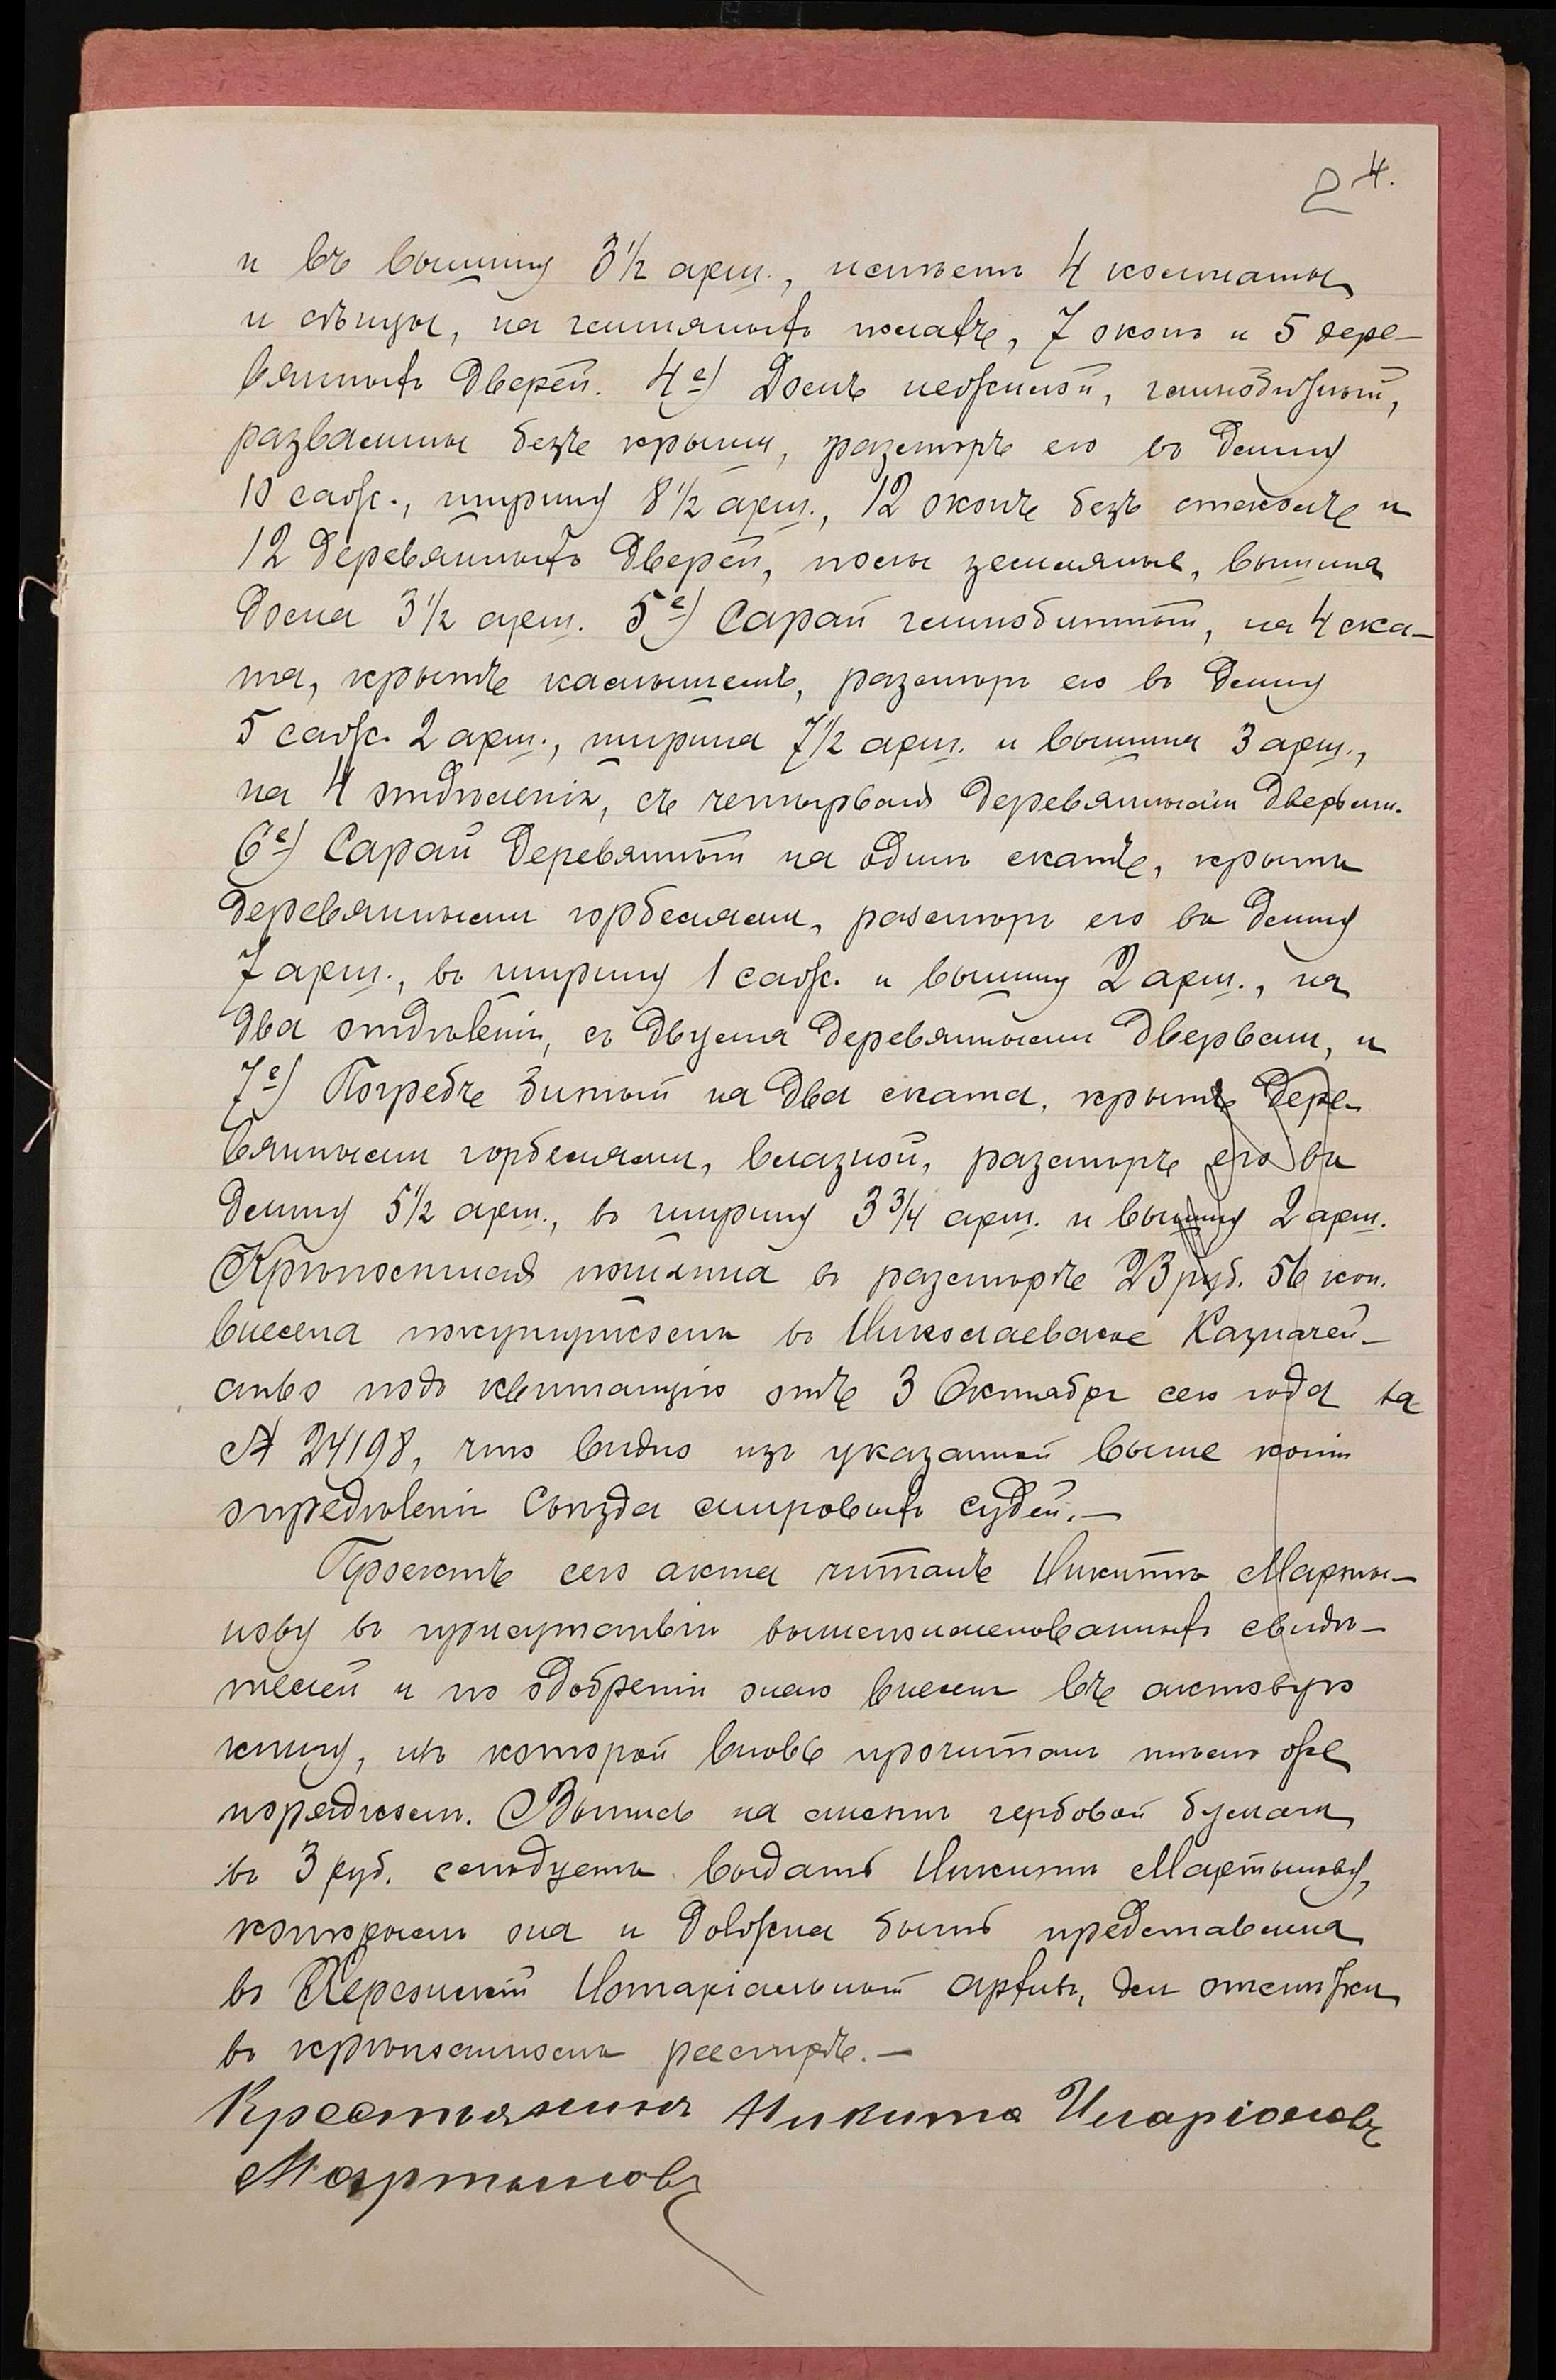 2 4.
и въ вышину 3½ арш., имѣетъ 4 комнаты
и сѣнцы, на глиняныхъ полахъ, 7 оконъ и 5 дере-
вянныхъ дверей. 4е) Домъ нежилой, глинобитный,
развалины безъ крыши, размѣръ его въ длину
10 саж., ширину 8½ арш., 12 оконъ безъ стеколъ и
12 деревянныхъ дверей, полы земляные, вышина
дома 3½ арш. 5е) Сарай глинобитный, на 4 ска-
та, крытъ камышемъ, размѣръ его въ длину
5 саж. 2 арш., ширина 7½ арш. и вышина 3 арш.,
на 4 отдѣленія, съ четырьмя деревянными дверьми.
6е) Сарай деревянный на одинъ скатъ, крытъ
деревянными горбылями, размѣръ его въ длину
7 арш., въ ширину 1 саж. и вышину 2 арш., на
два отдѣленія, съ двумя деревянными дверьми, и
7е) Погребъ битый на два ската, крытъ дере-
вянными горбылями, влазной, размѣръ его въ
длину 5½ арш., въ ширину 3¾ арш. и вышину 2 арш.
Крѣпостная пошлина въ размѣрѣ 23 руб. 56 коп.
внесена покупщикомъ въ Николаевское Казначей-
ство подъ квитанцію отъ 3 Октября сего года за
№ 24198, что видно изъ указанной выше копіи
опредѣленія Съѣзда мировыхъ судей.—
Проектъ сего акта читанъ Никитѣ Марты-
нову въ присутствіи вышепоименованныхъ свидѣ-
телей и по одобреніи онаго внесенъ въ актовую
книгу, изъ которой вновь прочитанъ тѣмъ же
порядкомъ. Выпись на листѣ гербовой бумаги
въ 3 руб. слѣдуетъ выдать Никитѣ Мартынову,
которымъ она и должна быть представлена
въ Херсонскій Нотаріальный Архивъ, для отмѣтки
въ крѣпостномъ реестрѣ.—
Крестьянинъ Никита Иларіоновъ
Мартыновъ